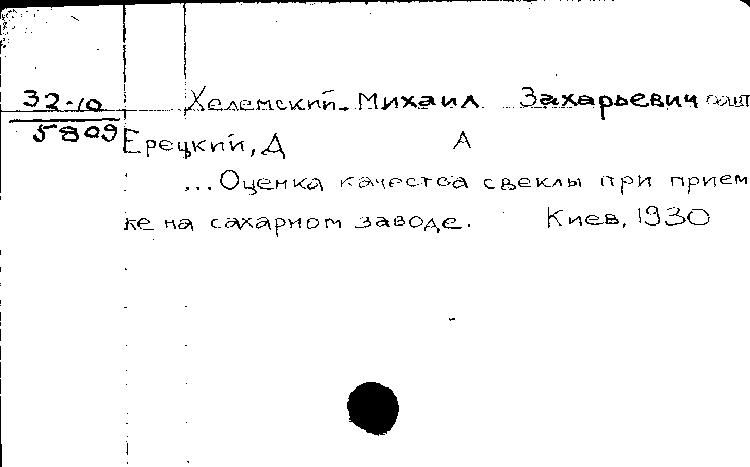 32-10
5809
Хелемский Михаил Захарьевич
Ерецкий, Д А
...Оценка качества свеклы при прием
ке на сахарном заводе. Киев, 1930